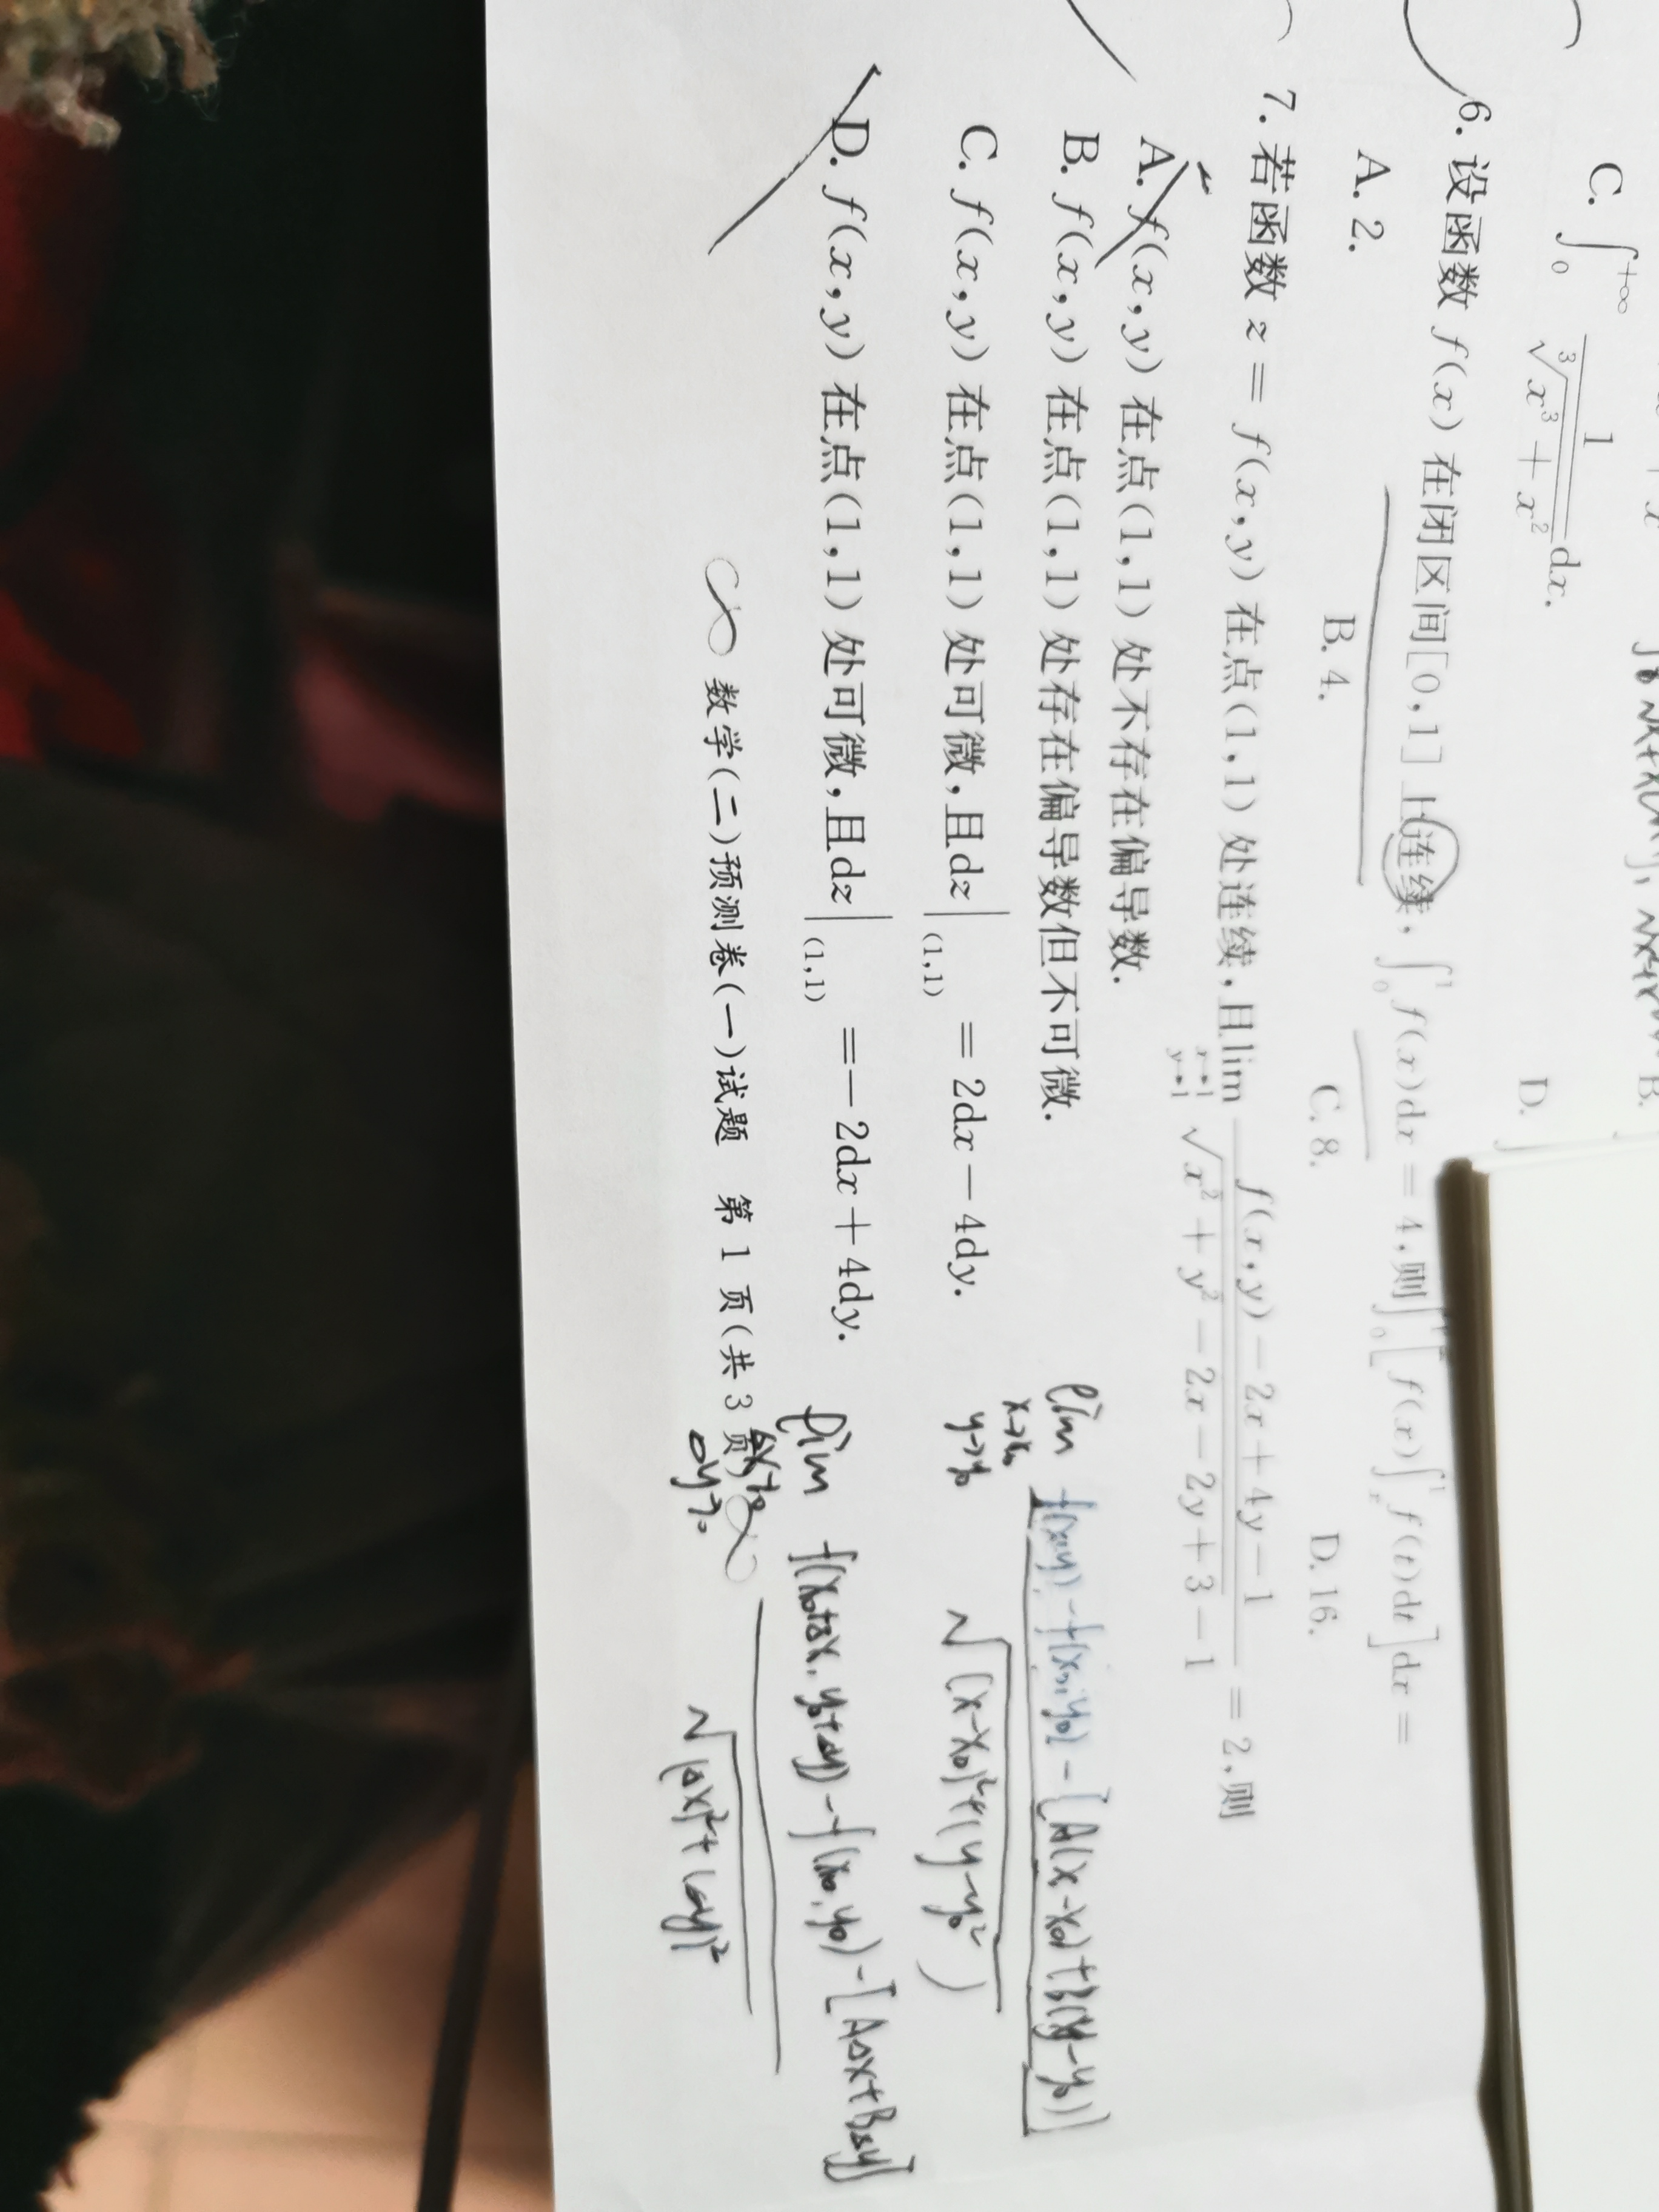 C. ∫₀^{+∞} 1/∛(x³+x²) dx.
D. ∫
6. 设函数 f(x) 在闭区间[0,1]上连续, ∫₀¹ f(x)dx = 4,则
[f(x)∫ₓ¹ f(t)dt]dx =
A. 2. B. 4. C. 8. D. 16.
7. 若函数 z = f(x,y) 在点(1,1) 处连续,且 lim_{x→1, y→1} (f(x,y) − 2x + 4y − 1)/(√(x² + y² − 2x − 2y + 3) − 1) = 2,则
A. f(x,y) 在点(1,1) 处不存在偏导数.
B. f(x,y) 在点(1,1) 处存在偏导数但不可微.
C. f(x,y) 在点(1,1) 处可微,且dz|_{(1,1)} = 2dx − 4dy.
D. f(x,y) 在点(1,1) 处可微,且dz|_{(1,1)} = −2dx + 4dy.
lim_{x→x₀, y→y₀} f(x,y) − f(x₀,y₀) − [A(x−x₀)+B(y−y₀)]
√((x−x₀)²+(y−y₀²)
lim_{Δx→0, Δy→0} f(x₀+Δx, y₀+Δy) − f(x₀,y₀) − [AΔx+BΔy]
√(Δx)²+(Δy)²
数学(二)预测卷(一)试题 第 1 页(共 3 页)